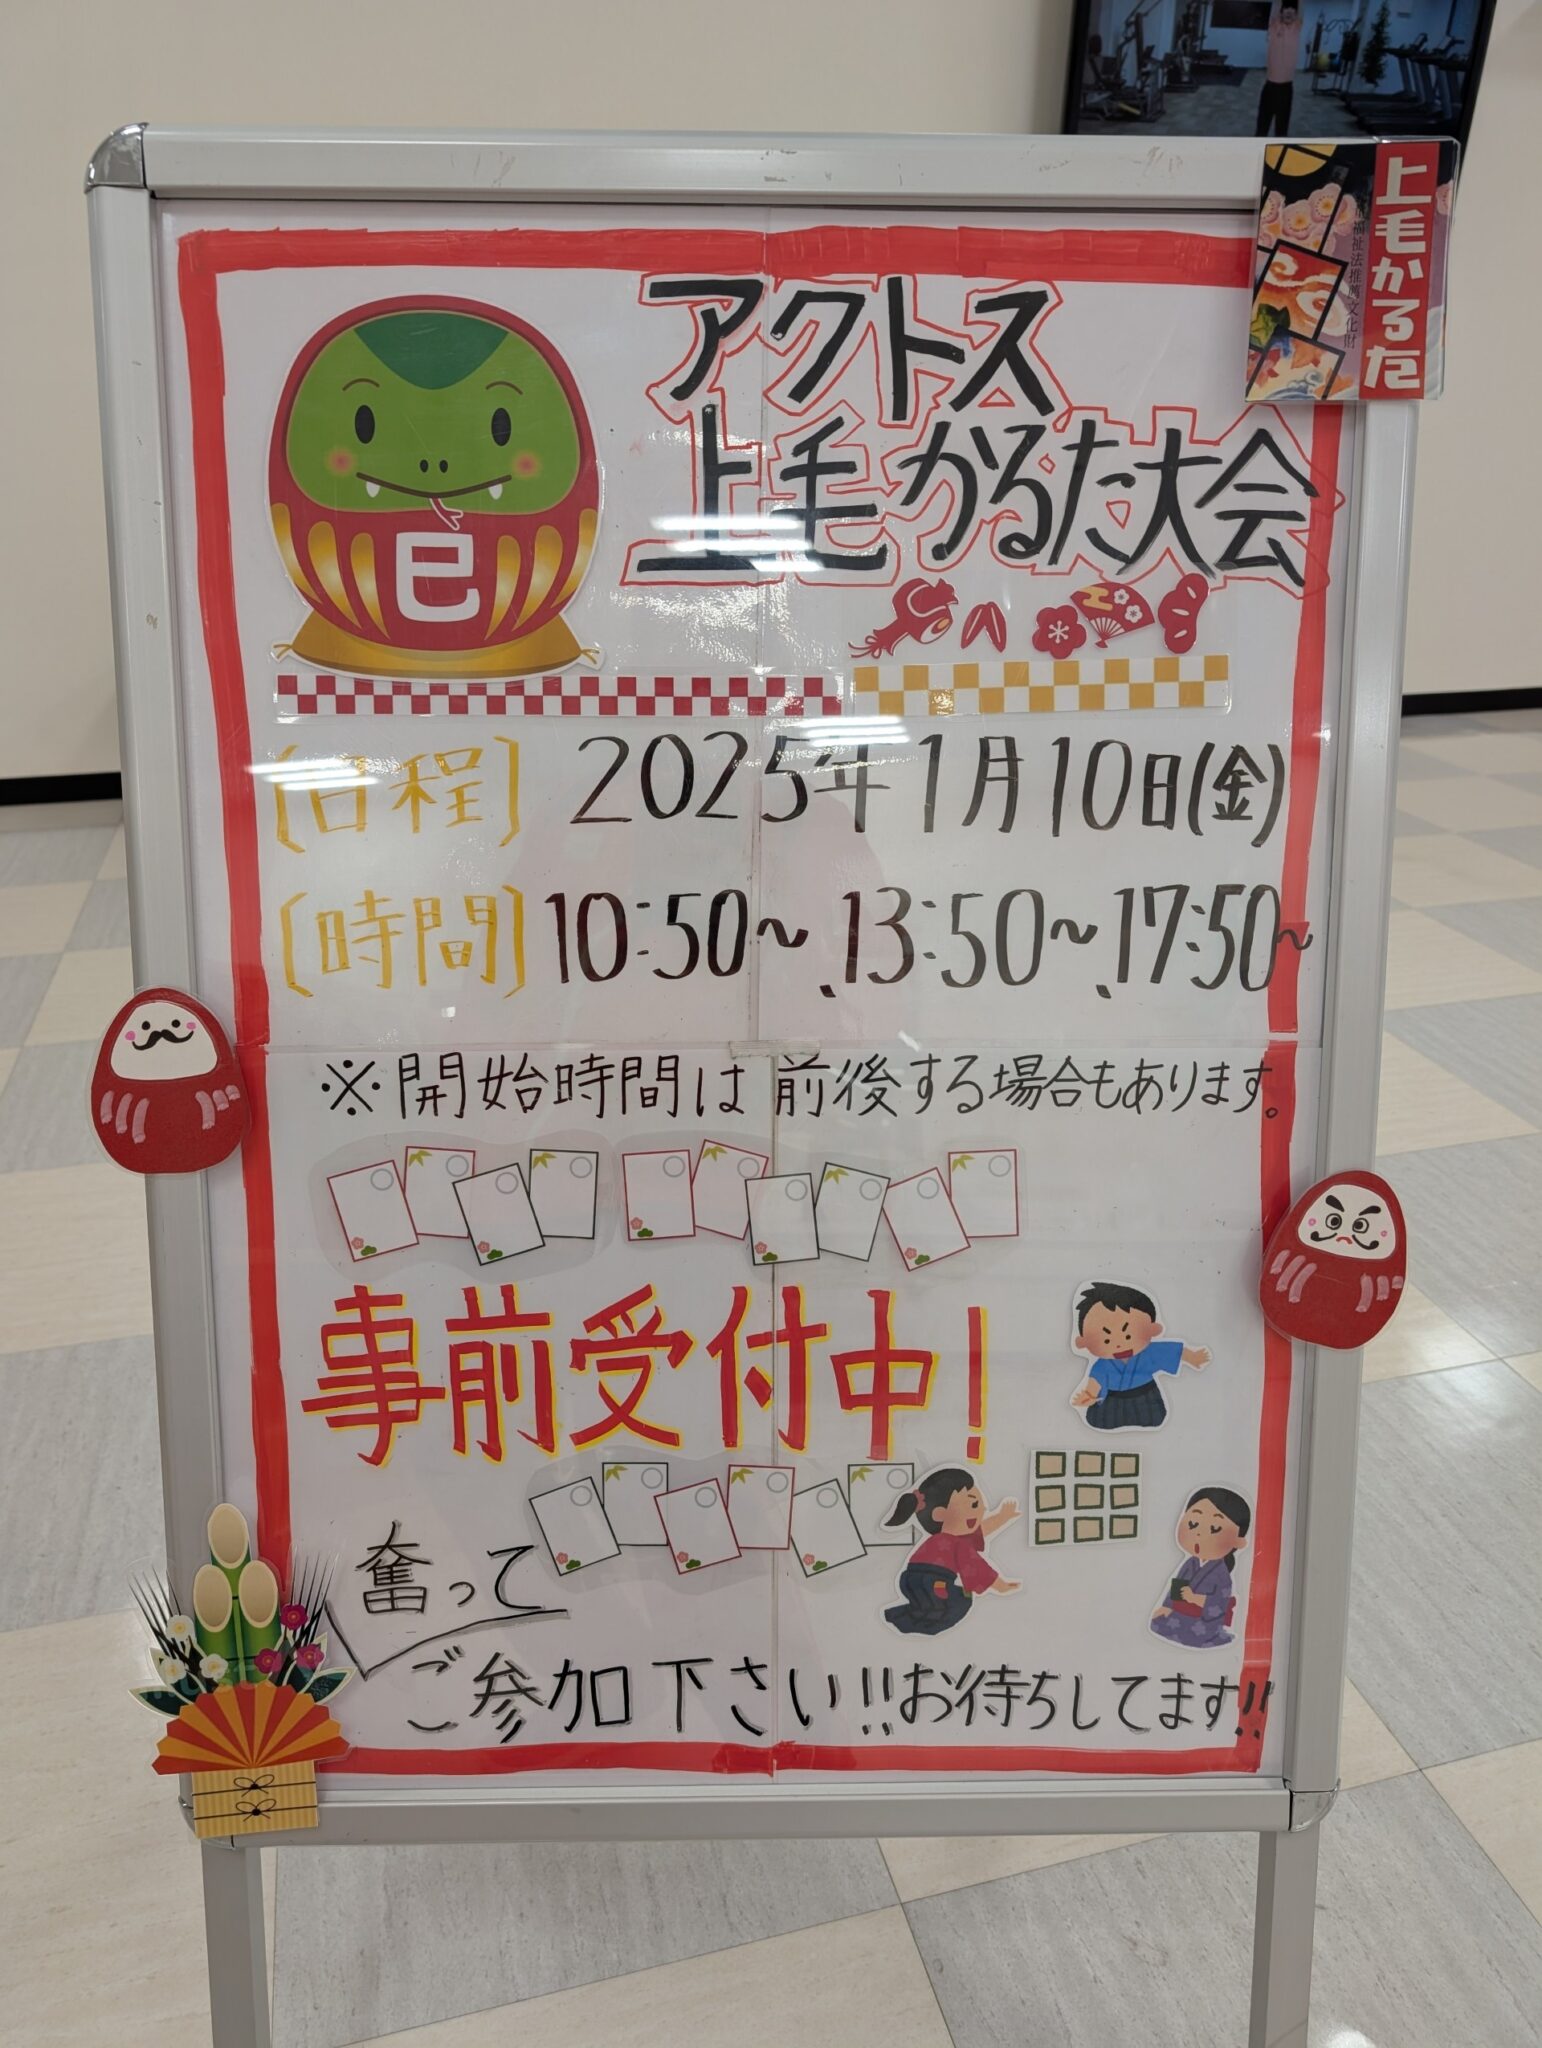 上毛かるた
福祉法推薦文化財
アクトス
上毛かるた大会
巳
[日程] 2025年1月10日(金)
[時間] 10:50~、13:50~、17:50~
※開始時間は前後する場合もあります。
事前受付中!
奮って
ご参加下さい!!お待ちしてます!!